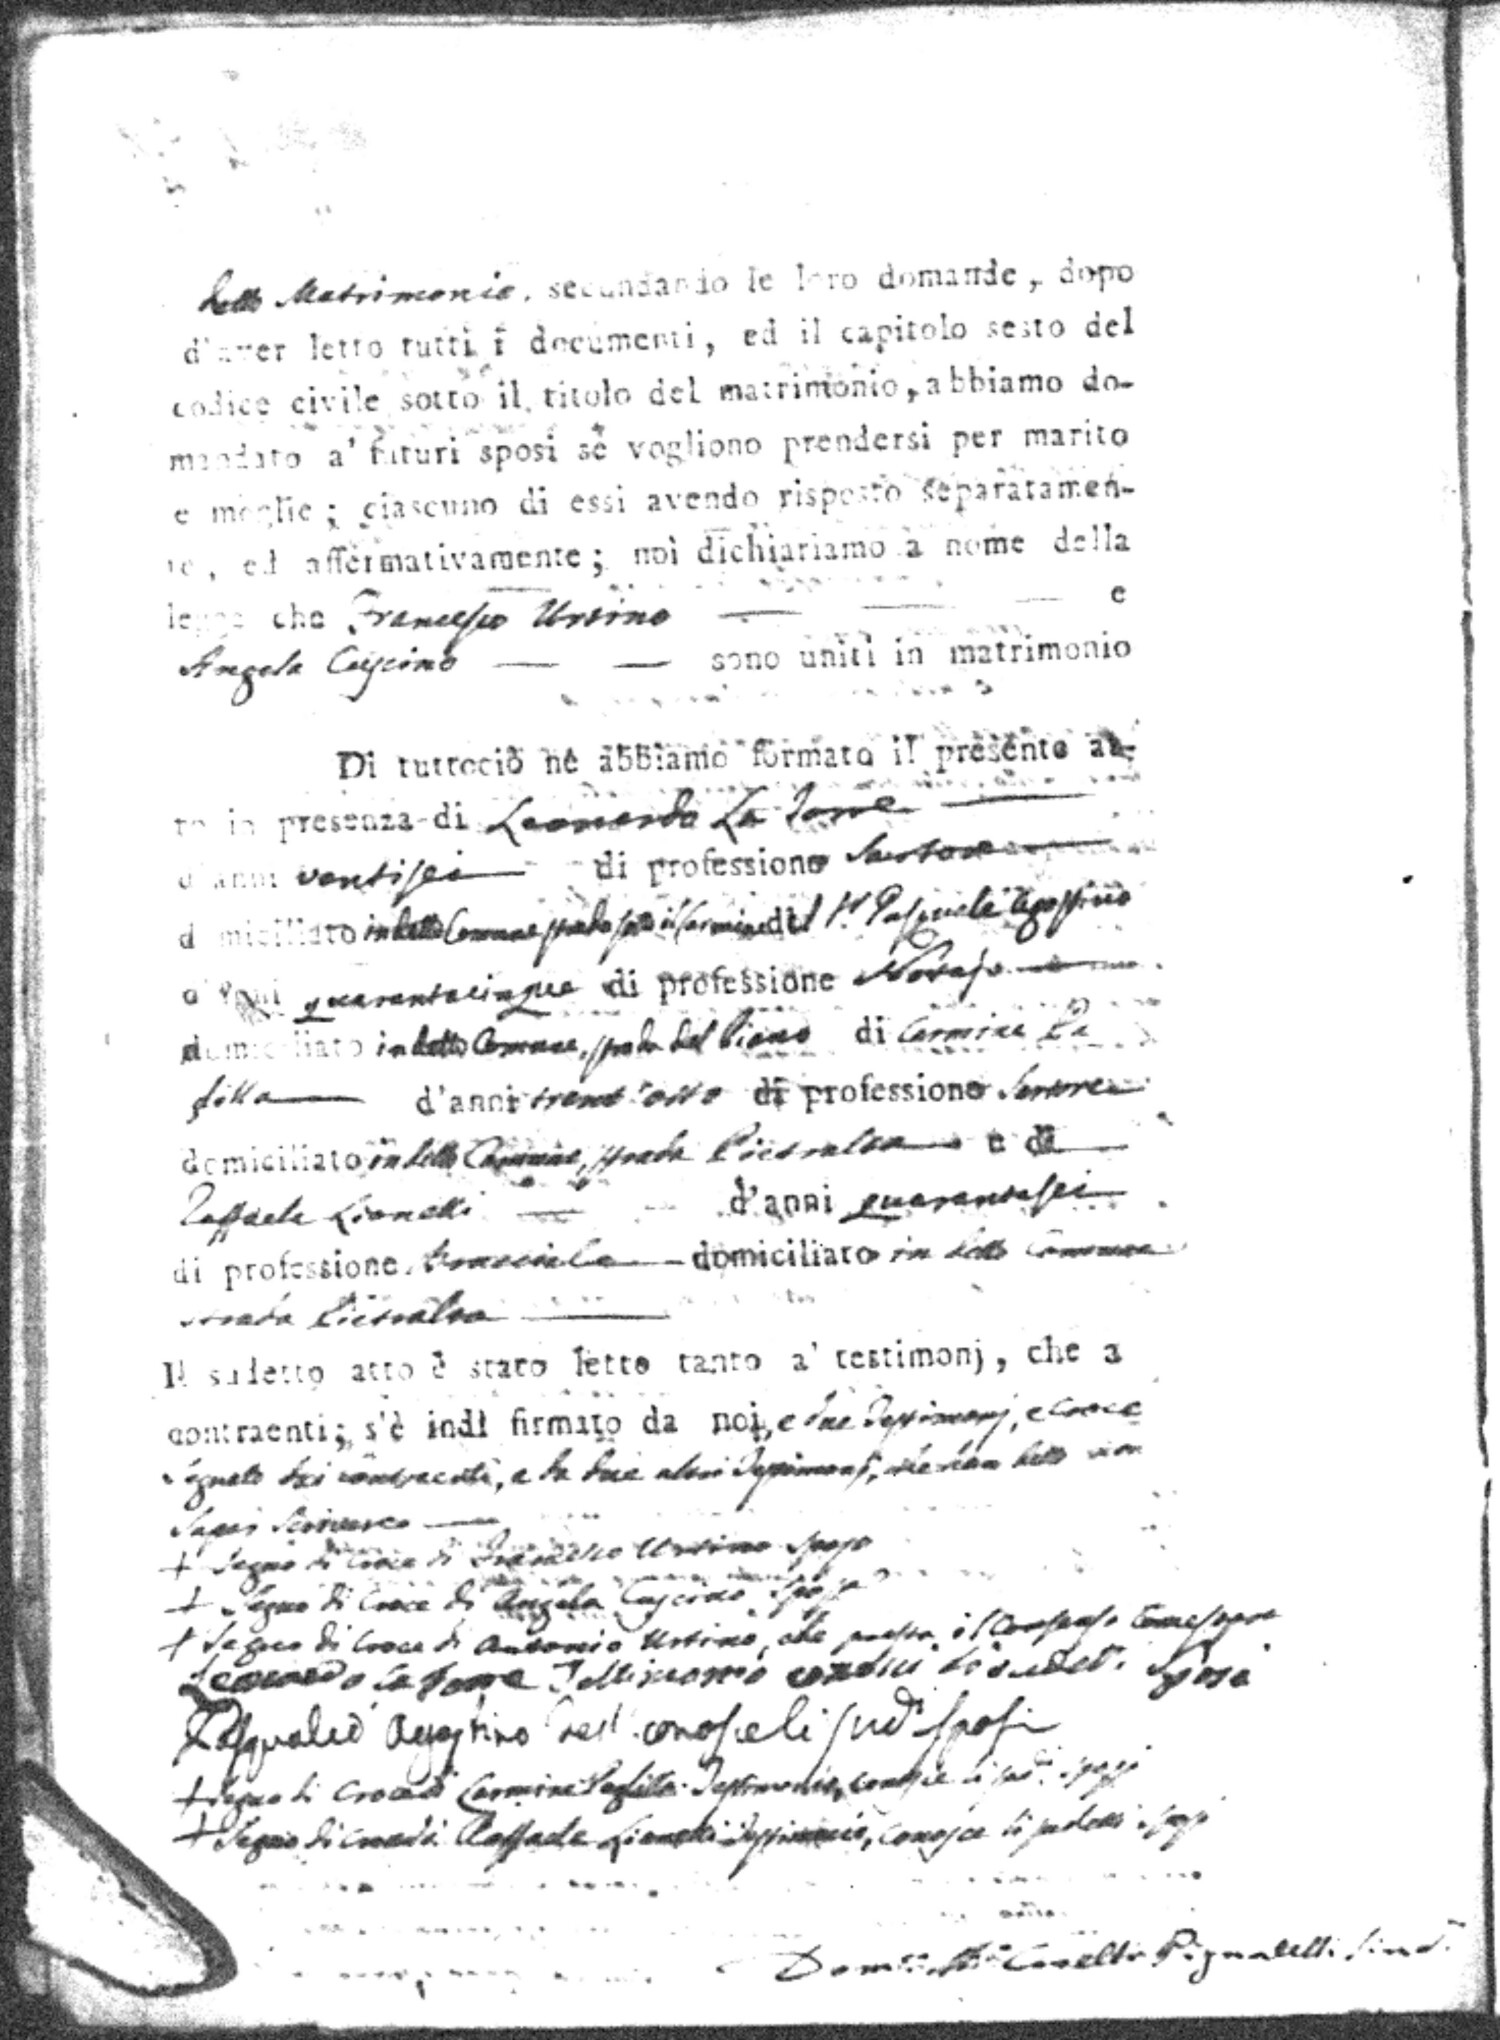 detto Matrimonio, secundando le loro domande, dopo
d'aver letto tutti i documenti, ed il capitolo sesto del
codice civile sotto il titolo del matrimonio, abbiamo do-
mandato a' futuri sposi se vogliono prendersi per marito
e moglie; ciascuno di essi avendo risposto separatamen-
te, ed affermativamente; noi dichiariamo a nome della
legge che Francesco Ursino e
Angela Cascino sono uniti in matrimonio
Di tuttociò ne abbiamo formato il presente at-
to in presenza di Leonardo La Torre
d'anni ventisei di professione Sartore
domiciliato in detto Comune strada sotto il Carmine di Pasquale Agostino
d'anni quarantacinque di professione
domiciliato in detto Comune, strada del Piano di Carmine Pa
glilla d'anni trent'otto di professione Sartore
domiciliato in detto Comune, strada Pietralta e di
Raffaele Lionetti d'anni quarantasei
di professione bracciale domiciliato in detto Comune
strada Pietralta
Il sudetto atto è stato letto tanto a' testimonj, che a
contraenti; s'è indi firmato da noi, e due Testimonj, e croce
segnato dai contraenti, e da due altri Testimonj, che han detto non
saper scrivere
+ Segno di Croce di Francesco Ursino sposo
+ Segno di Croce di Angela Cascino sposa
+ Segno di Croce di Antonio Ursino, che presta il Consenso come sopra
Leonardo La Torre Testimonio conosci li sudetti Sposi
Pasquale Agostino Test. conosce li sud.i sposi
+ Segno di Croce di Carmine Paglilla Testimonio, conosce li sud.i sposi
+ Segno di Croce di Raffaele Lionetti Testimonio, conosce li sudetti sposi
Pignatelli Sind.